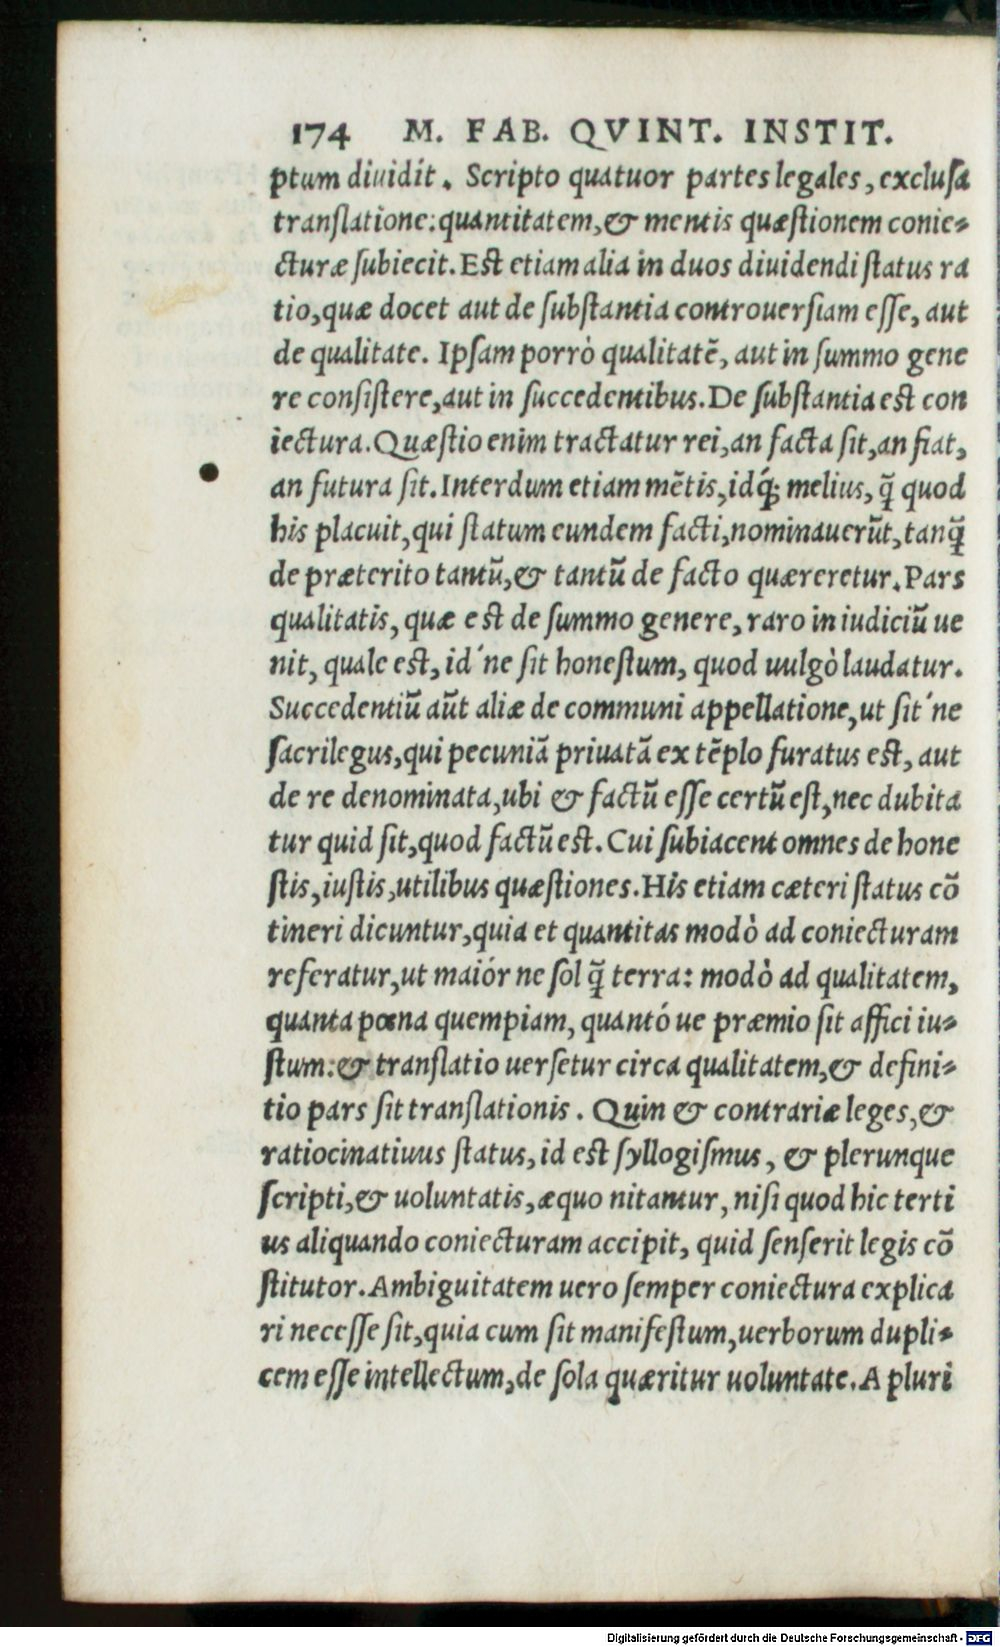 174 M. FAB. QVINT. INSTIT.
ptum diuidit. Scripto quatuor partes legales, exclusa
translatione: quantitatem, & mentis quæstionem conie-
cturæ subiecit. Est etiam alia in duos diuidendi status ra
tio, quæ docet aut de substantia controuersiam esse, aut
de qualitate. Ipsam porrò qualitatē, aut in summo gene
re consistere, aut in succedentibus. De substantia est con
iectura. Quæstio enim tractatur rei, an facta sit, an fiat,
an futura sit. Interdum etiam mētis, idq́; melius, q̃ quod
his placuit, qui statum eundem facti, nominauerūt, tanq̃
de præterito tantū, & tantū de facto quæreretur. Pars
qualitatis, quæ est de summo genere, raro in iudiciū ue
nit, quale est, id´ne sit honestum, quod uulgò laudatur.
Succedentiū aūt aliæ de communi appellatione, ut sit´ne
sacrilegus, qui pecuniā priuatā ex tēplo furatus est, aut
de re denominata, ubi & factū esse certū est, nec dubita
tur quid sit, quod factū est. Cui subiacent omnes de hone
stis, iustis, utilibus quæstiones. His etiam cæteri status cō
tineri dicuntur, quia et quantitas modò ad coniecturam
referatur, ut maiór ne sol q̃ terra: modò ad qualitatem,
quanta pœna quempiam, quantó ue præmio sit affici iu-
stum: & translatio uersetur circa qualitatem, & defini-
tio pars sit translationis. Quin & contrariæ leges, &
ratiocinatiuus status, id est syllogismus, & plerunque
scripti, & uoluntatis, æquo nitantur, nisi quod hic terti
us aliquando coniecturam accipit, quid senserit legis cō
stitutor. Ambiguitatem uero semper coniectura explica
ri necesse sit, quia cum sit manifestum, uerborum dupli-
cem esse intellectum, de sola quæritur uoluntate. A pluri
Digitalisierung gefördert durch die Deutsche Forschungsgemeinschaft - DFG